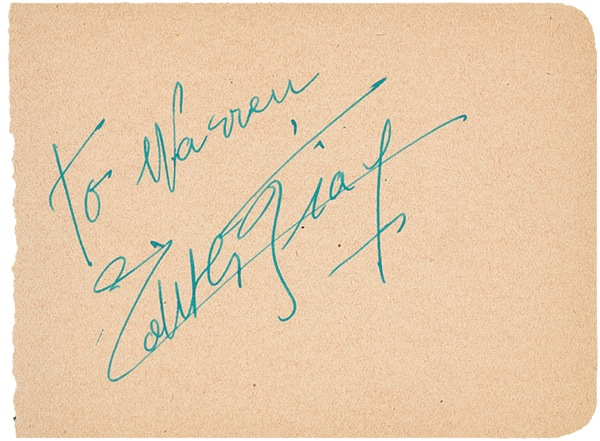 To Warren
Edith Piaf